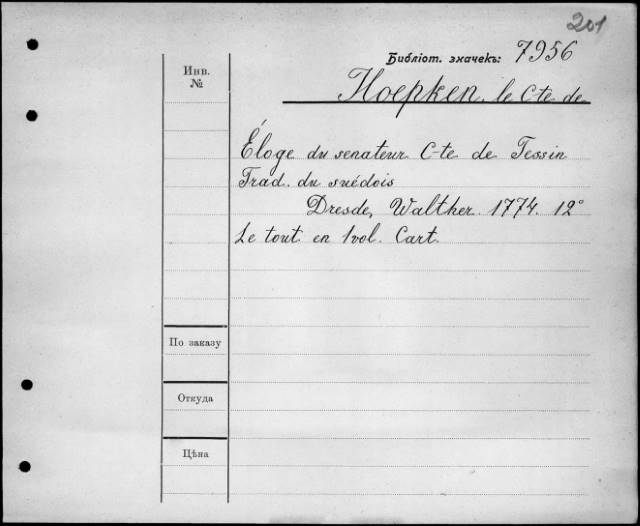 201
Библіот. значекъ: 7956
Инв. №
Hoepken, le C-te de
Éloge du senateur C-te de Tessin
Trad. du suédois
Dresde, Walther 1774. 12°
Le tout en 1 vol. Cart.
По заказу
Откуда
Цѣна